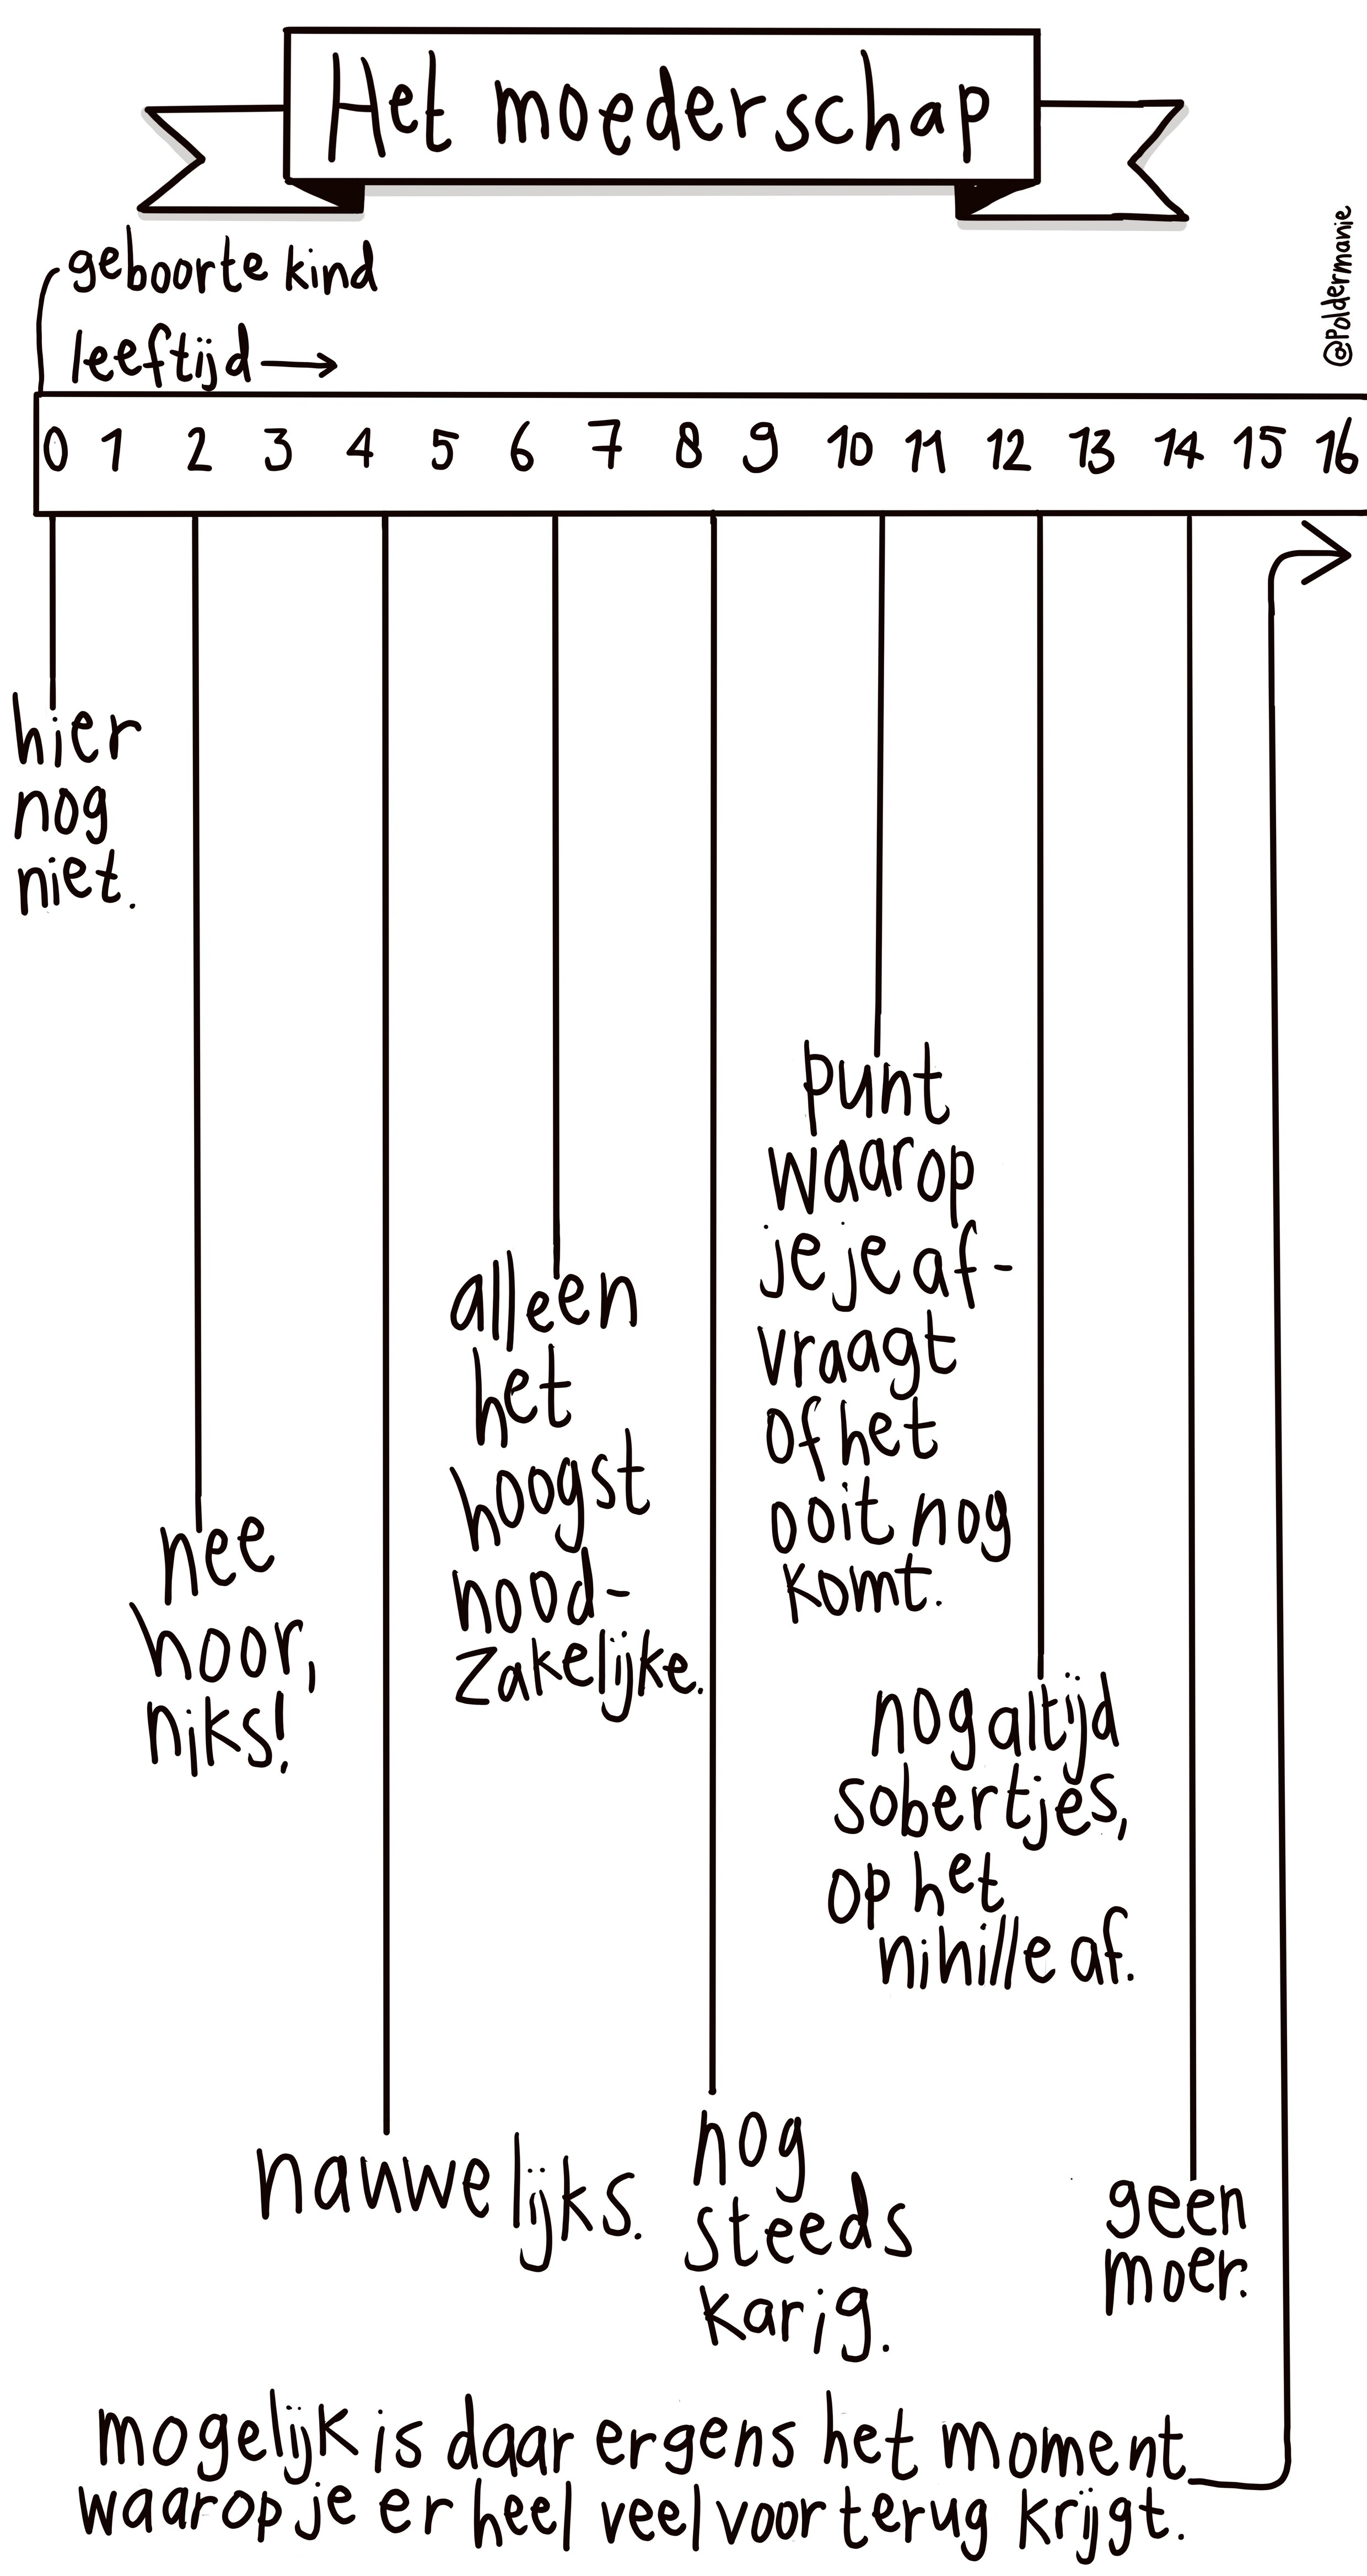 Het moederschap
@Poldermanie
geboorte kind
leeftijd
0 1 2 3 4 5 6 7 8 9 10 11 12 13 14 15 16
hier
nog
niet.
nee
hoor,
niks!
nauwelijks.
alleen
het
hoogst
nood-
zakelijke.
nog
steeds
karig.
punt
waarop
je je af-
vraagt
of het
ooit nog
komt.
nog altijd
sobertjes,
op het
nihille af.
geen
moer.
mogelijk is daar ergens het moment
waarop je er heel veel voor terug krijgt.